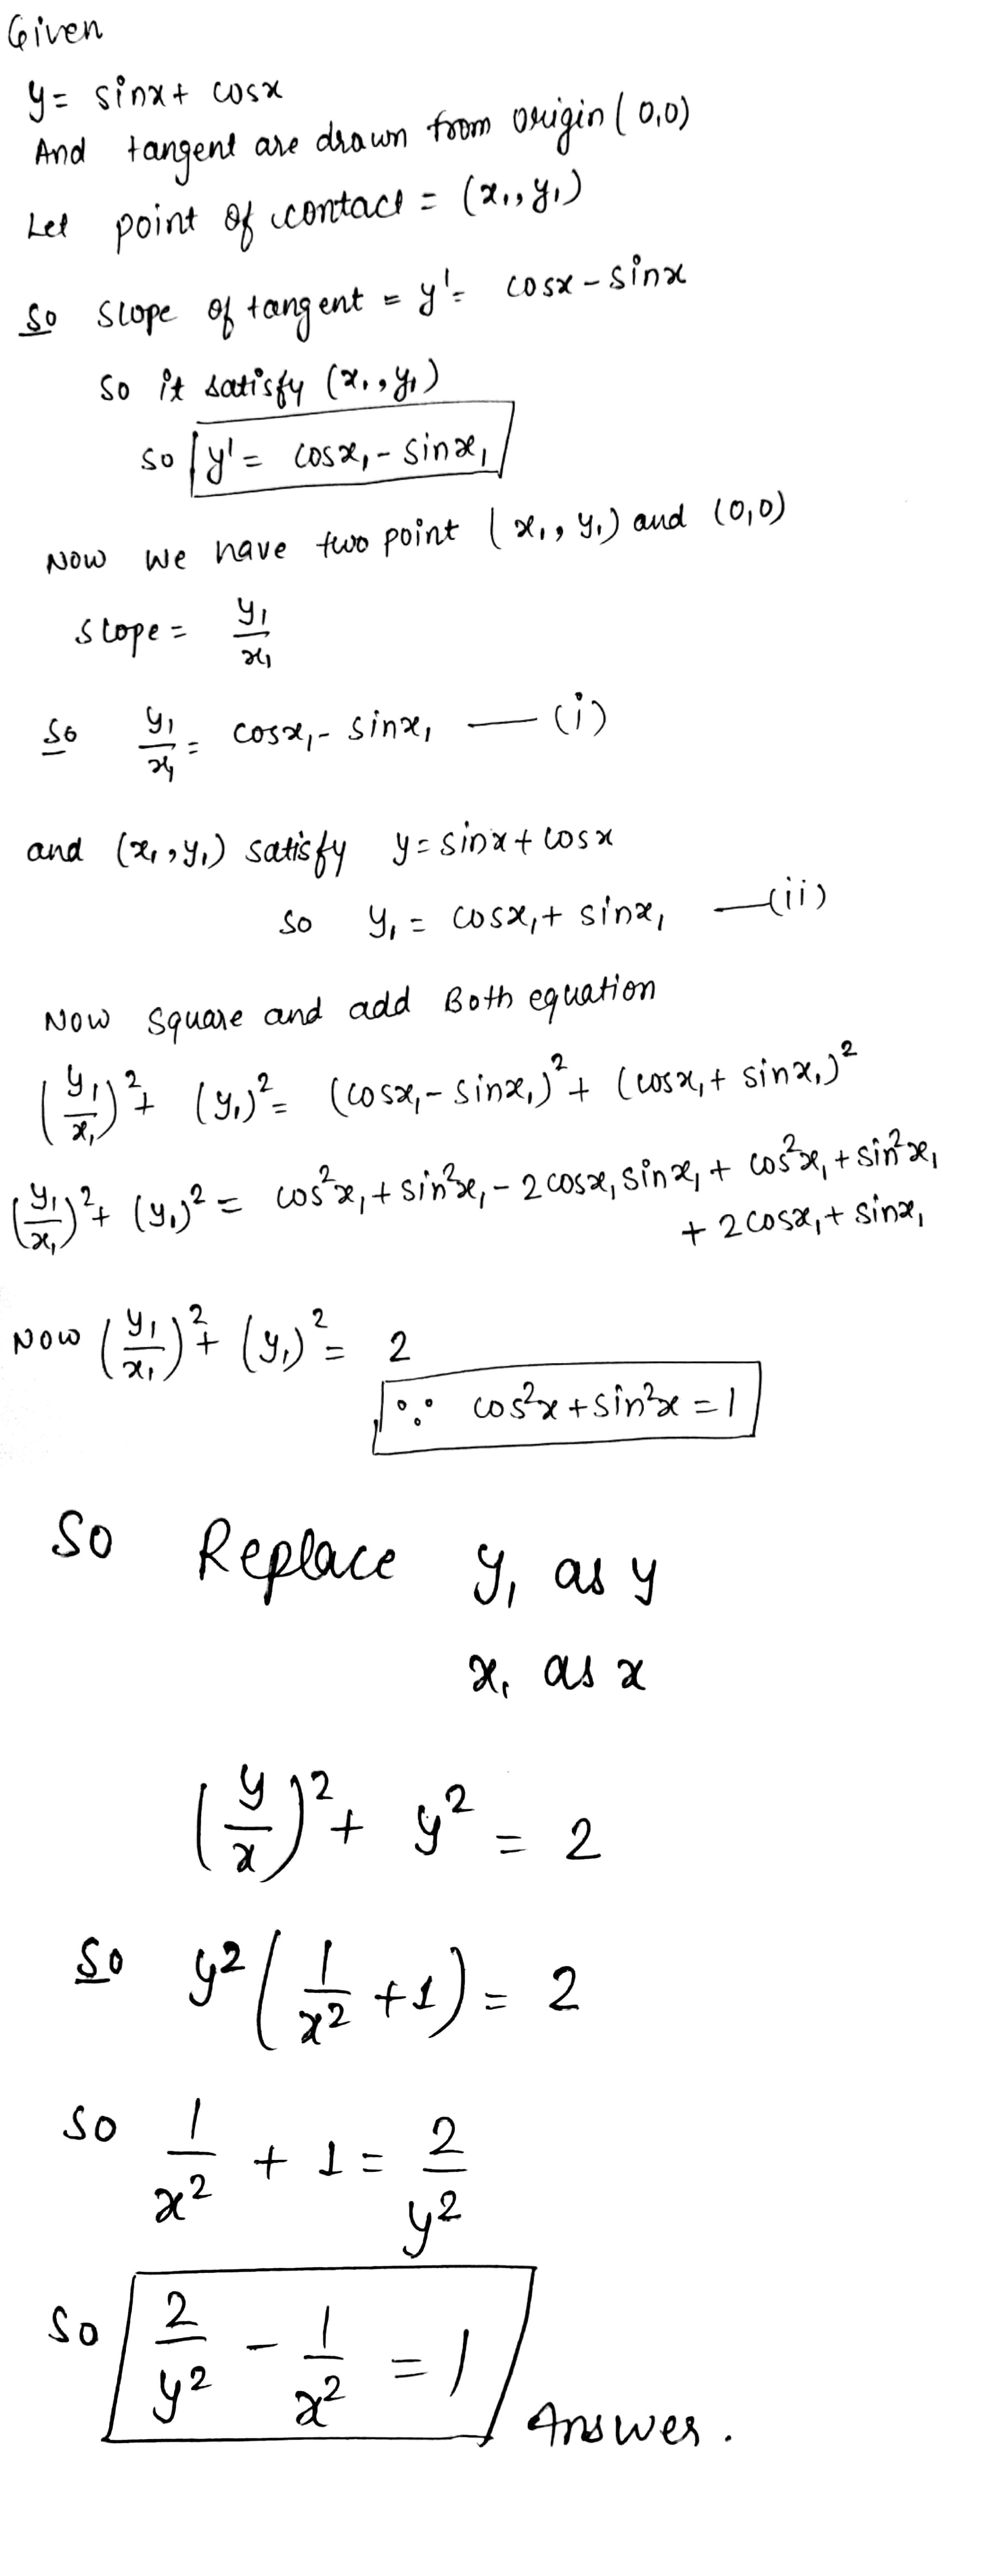 Given
y = sinx + cosx
And tangent are drawn from origin (0,0)
Let point of contact = (x₁, y₁)
So slope of tangent = y' = cosx - sinx
So it satisfy (x₁, y₁)
so y' = cosx₁ - sinx₁
Now we have two point (x₁, y₁) and (0,0)
slope = y₁/x₁
So y₁/x₁ = cosx₁ - sinx₁ — (i)
and (x₁, y₁) satisfy y = sinx + cosx
So y₁ = cosx₁ + sinx₁ — (ii)
Now square and add Both equation
(y₁/x₁)² + (y₁)² = (cosx₁ - sinx₁)² + (cosx₁ + sinx₁)²
(y₁/x₁)² + (y₁)² = cos²x₁ + sin²x₁ - 2cosx₁ sinx₁ + cos²x₁ + sin²x₁
+ 2cosx₁ + sinx₁
Now (y₁/x₁)² + (y₁)² = 2
∵ cos²x + sin²x = 1
So Replace y₁ as y
x₁ as x
(y/x)² + y² = 2
So y² (1/x² + 1) = 2
so 1/x² + 1 = 2/y²
so 2/y² - 1/x² = 1
Answer.